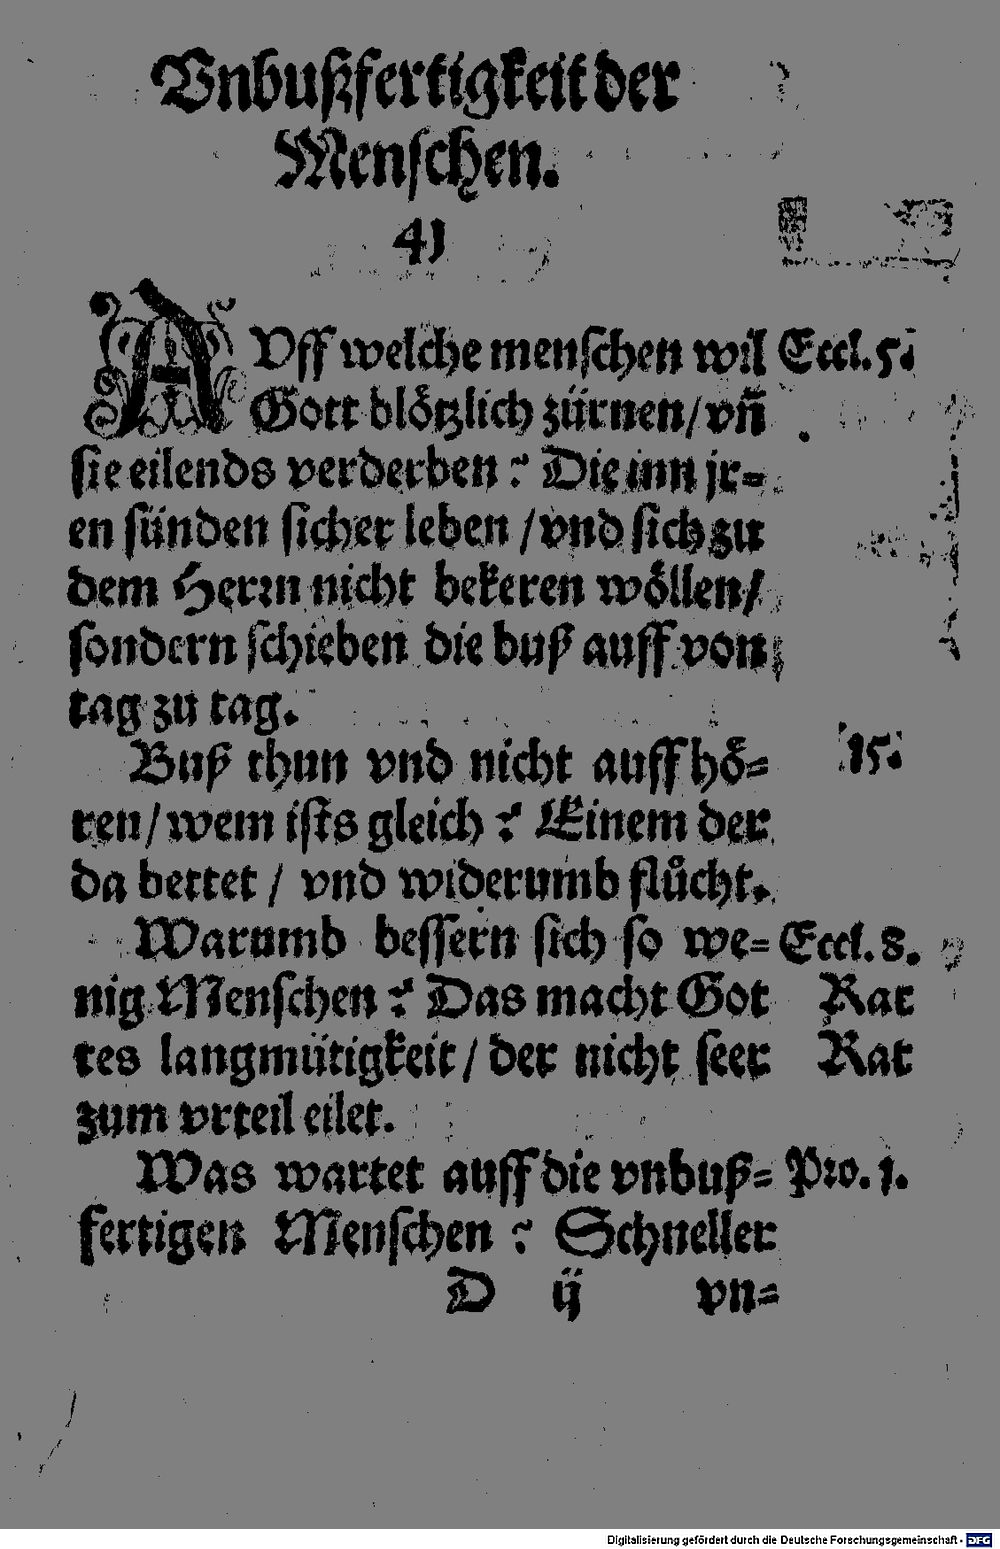 Vnbußfertigkeit der
Menschen.
41
AVff welche menschen wil
Gott blötzlich zürnen/ vn̄
sie eilends verderben? Die inn jr=
en sünden sicher leben / vnd sich zu
dem Herrn nicht bekeren wöllen/
sondern schieben die buß auff von
tag zu tag.
Eccl. 5.
Buß thun vnd nicht auffhö=
ren/ wem ists gleich? Einem der
da bettet / vnd widerumb flůcht.
15.
Warumb bessern sich so we=
nig Menschen? Das macht Got
tes langmütigkeit/ der nicht seer
zum vrteil eilet.
Eccl. 8.
Rat
Rat
Was wartet auff die vnbuß=
fertigen Menschen? Schneller
Pro. 1.
D ij vn=
Digitalisierung gefördert durch die Deutsche Forschungsgemeinschaft - DFG